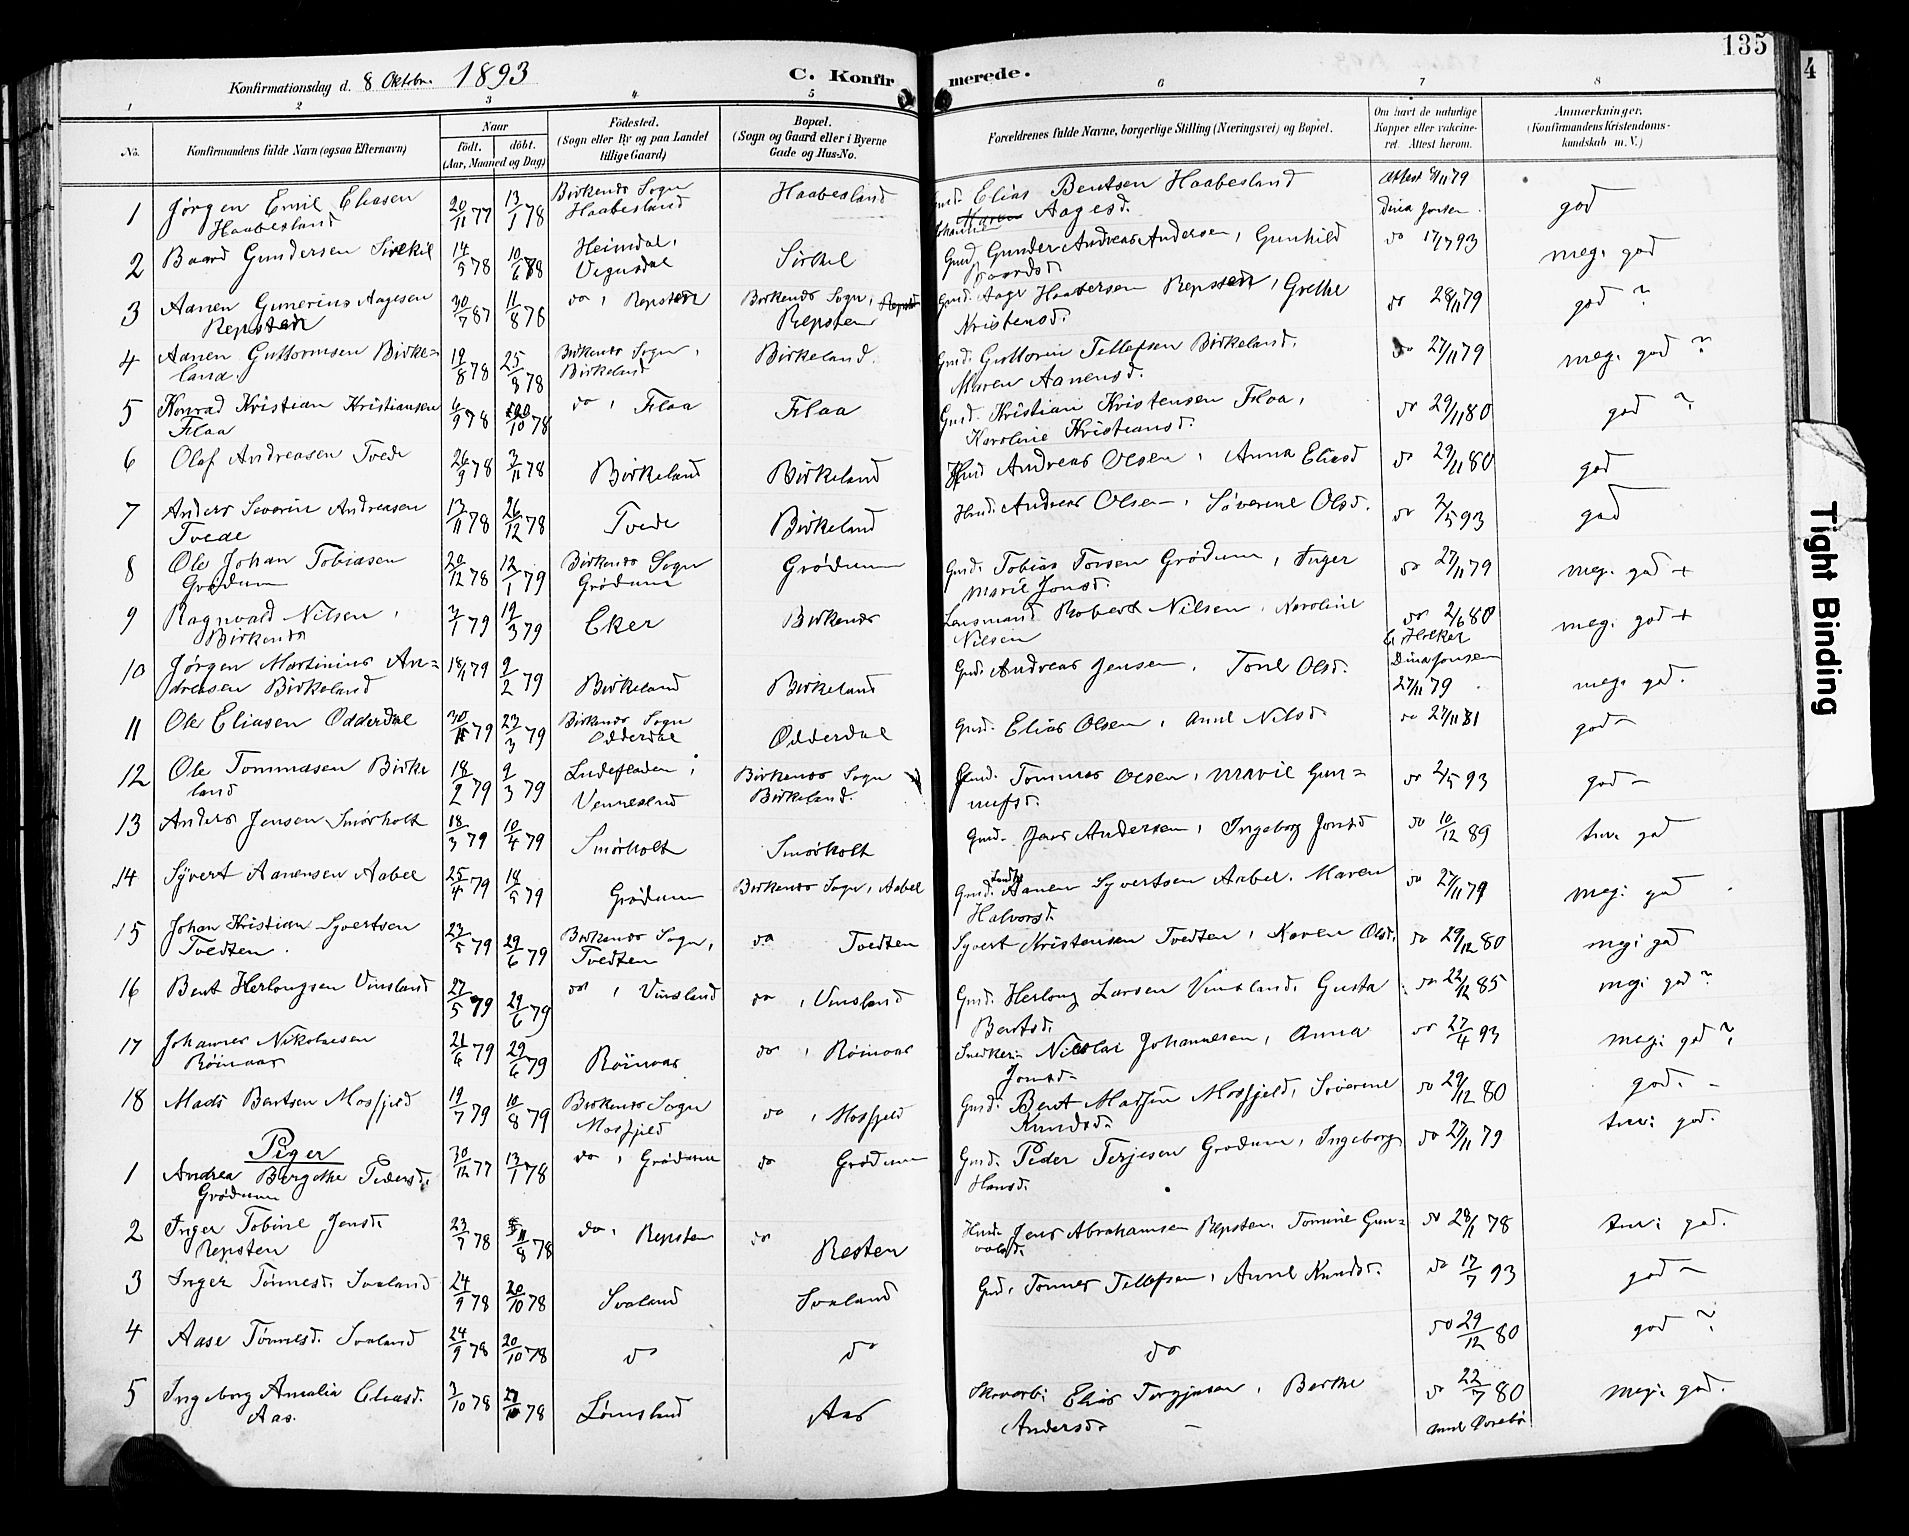 135
4
Konfirmationsdag d. 8 Oktbr. 1893 C. Konfirmerede.
1 2 3 4 5 6 7 8
No. Konfirmandens fulde Navn (ogsaa Efternavn) Naar født. døbt. (Aar, Maaned og Dag) Fødested. (Sogn eller By og paa Landet tillige Gaard) Bopæl. (Sogn og Gaard eller i Byerne Gade og Hus-No. Forældrenes fulde Navne, borgerlige Stilling (Næringsvei) og Bopæl. Om havt de naturlige Kopper eller vakcineret. Attest herom. Anmærkninger. (Konfirmandens Kristendomskundskab m. V.)
1 Jørgen Emil Eliasen Haabesland 20/11 77 13/1 78 Birkenes Sogn Haabesland Haabesland Gmd. Elias Bentsen Haabesland Johanne Aagesd. Attest 79 Dina Jensen god
2 Baard Gundersen Sirekil 14/5 78 10/6 78 Heimdal, Vegusdal Sirkel Gmd. Gunder Andreas Andersen, Gunhild Baardsd. do 17/7 93 meg. god
3 Aanen Gunerius Aagesen Repsten 30/7 87 11/8 78 do, Repsten Birkenes Sogn, Repsten Gmd. Aage Repsten, Grethe Kristensd. do 28/11 79 god ?
4 Aanen Guttormsen Birkeland. 19/8 78 25/8 78 Birkenes Sogn, Birkeland Birkeland. Gmd. Guttorm Tellefsen Birkeland, Maren Aanensd. do 27/11 79 meg. god ?
5 Konrad Kristian Kristiansen Flaa 6/9 78 20/10 78 do, Flaa Flaa Gmd. Kristian Kristensen Flaa, Karoline Kristiansd. do 29/11 80 god ?
6 Olaf Andreasen Tvede 26/9 78 3/11 78 Birkeland Birkeland Hmd Andreas Olsen, Anna Eliasd do 29/11 80 god
7 Anders Severin Andreasen Tvede 13/11 78 26/12 78 Tvede Birkeland Hmd. Andreas Olsen, Søverine Olsd. do 2/5 93 god
8 Ole Johan Tobiasen Grødum 20/12 78 12/1 79 Birkenes Sogn Grødum Grødum Gmd. Tobias Torsen Grødum, Inger Marie Jonsd. do 27/11 79 meg. god +
9 Ragnvald Nilsen, Birkenes 3/1 79 19/3 79 Eker Birkenes Lensmand Robert Nilsen, Karoline Nilsen do 2/6 80 meg. god +
10 Jørgen Martinius Andreasen Birkeland 18/1 79 9/2 79 Birkeland Birkeland Gmd. Andreas Jensen, Tone Olsd. Dina Jensen 27/11 79 meg. god.
11 Ole Eliasen Odderdal 79 23/3 79 Birkenes Sogn Odderdal Odderdal Gmd. Elias Olsen, Anne Nilsd. do 27/11 81 god –
12 Ole Tommasen Birkeland 18/2 79 9/3 79 Vennesland Birkenes Sogn Birkeland. Gmd. Tommas Olsen, Marie Gunnufsd. do 2/5 93 god –
13 Anders Jensen Smørholt 18/3 79 10/4 79 Smørholt Smørholt Gmd. Jens Andersen, Ingeborg Jonsd do 10/12 89 tvvi god
14 Syvert Aanensen Aabel 25/4 79 18/5 79 Grødum Birkenes Sogn, Aabel Gmd. Aanen Syvertsen Aabel, Maren Halvorsd. do 27/11 79 megi god
15 Johan Kristian Syvertsen Tvedten. 23/5 79 29/6 79 Birkenes Sogn, Tvedten do Tvedten Syvert Kristensen Tvedten, Karen Olsd. do 29/12 80 megi god
16 Bent Herlougsen Vinsland 27/5 79 29/6 79 do, Vinsland do, Vinsland Gmd. Herloug Larsen Vinsland, Gusta Bentsd. do 22/12 85 megi god ?
17 Johannes Nikolaisen Röinaas 21/6 79 29/6 79 Röinaas do, Röinaas Snedker Nicolai Johannesen, Anna Jonsd. do 27/4 93 megi god ?
18 Mads Bentsen Mosfjeld 19/7 79 10/8 79 Birkenes Sogn Mosfjeld do, Mosfjeld Gmd. Bent Madsen Mosfjeld, Søverine Knudsd. do 29/12 80 god. –
Piger
1 Andrea Bergithe Pedersd. Grødum 30/12 77 13/1 78 do, Grødum do Grødum Gmd. Peder Terjesen Grødum, Ingeborg Hansd. do 27/11 79 tvvi god.
2 Inger Tobine Jensd. Repsten 23/7 78 11/8 78 do, Repsten do Resten Hmd. Jens Abrahamsen Repsten, Tomine Gunvolsd. do 28/11 78 tvvi god.
3 Inger Tønnesd. Svaland 24/9 78 20/10 78 Svaland Svaland Gmd. Tønnes Tellefsen, Anne Knudsd. do 17/7 93 god –
4 Aase Tønnesd. Svaland 24/9 78 20/10 78 do do do do 29/12 80 god ?
5 Ingeborg Amalia Eliasd. Aas. 3/10 78 27/10 78 Lømsland Aas Skovarb. Elias Tergjesen, Berthe Andersd. do 22/7 80 megi god.
Tight Binding